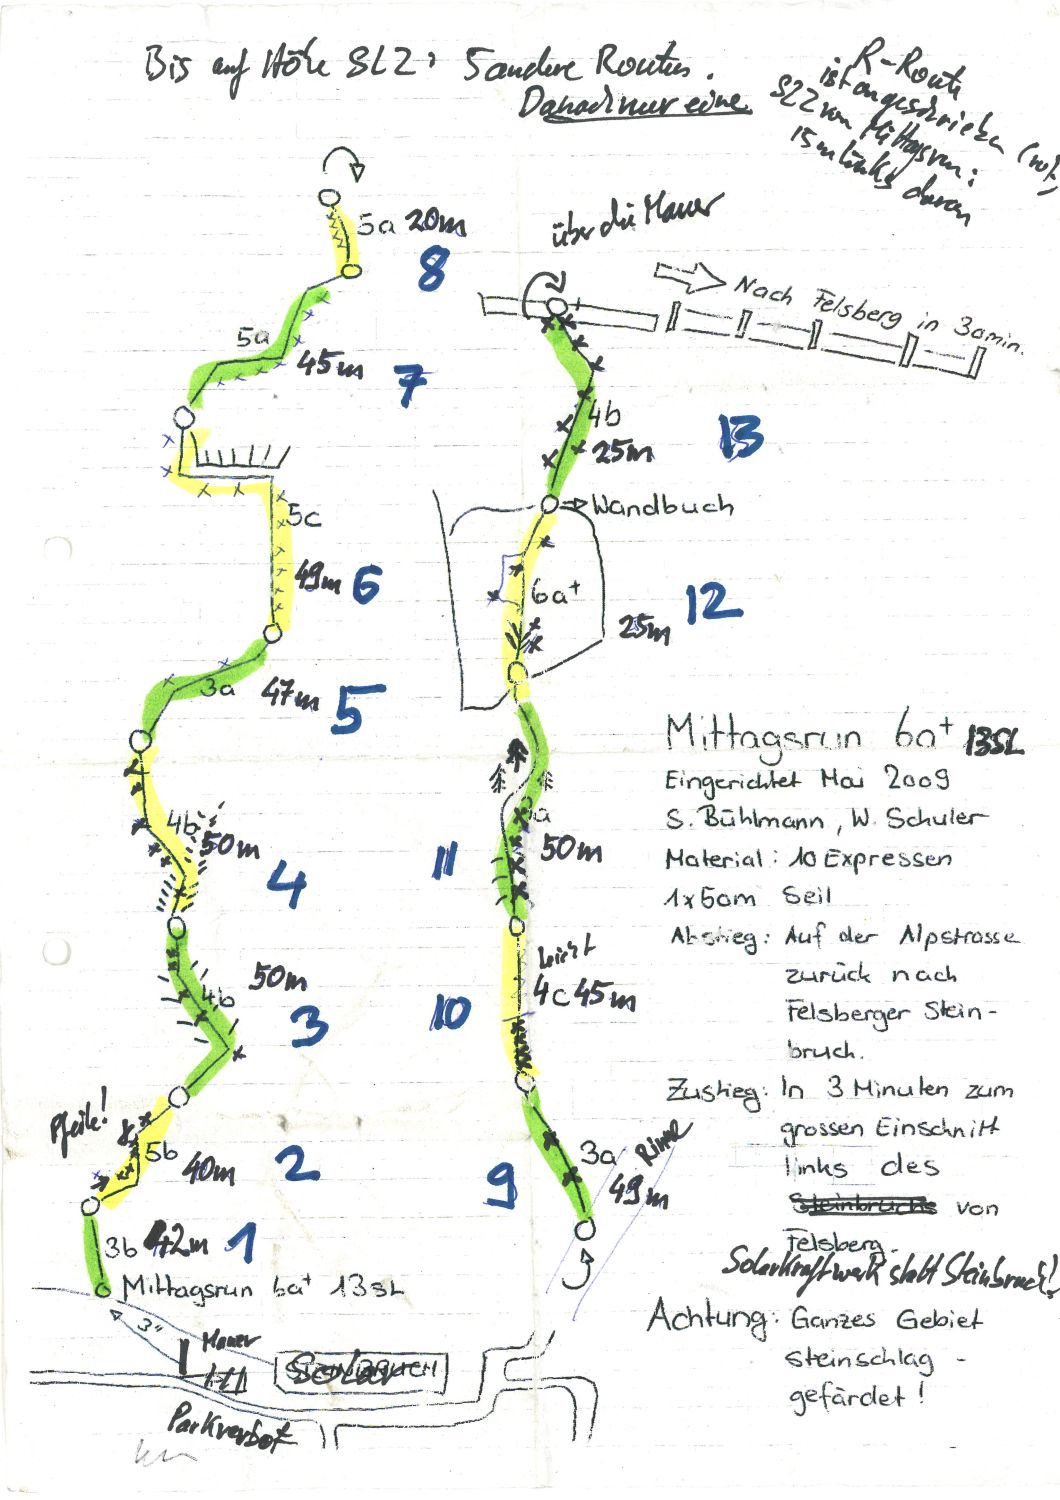 Bis auf Höhe SL2: 5 andere Routen.
Danach nur eine
R-Route
ist angeschrieben (rot,
SL2 von Mittagsrun:
15m links davon
5a 20m
8
über die Mauer
Nach Felsberg in 30min.
5a
45m
7
4b
25m
13
Wandbuch
5c
49m
6
6a+
25m
12
3a
47m
5
Mittagsrun 6a+ 13SL
Eingerichtet Mai 2009
S. Bühlmann, W. Schuler
Material: 10 Expressen
1x50m Seil
Abstieg: Auf der Alpstrasse
zurück nach
Felsberger Stein-
bruch.
Zustieg: In 3 Minuten zum
grossen Einschnitt
links des
Steinbruchs von
Felsberg.
Solarkraftwerk statt Steinbruch!
Achtung: Ganzes Gebiet
steinschlag-
gefärdet!
4b
50m
4
50m
11
leicht
4c 45m
10
50m
4b
3
Pfeile!
5b
40m
2
3a
Rinne
49m
9
3b 42m
1
Mittagsrun 6a+ 13SL
3"
Mauer
STEINBRUCH
Solar
Parkverbot